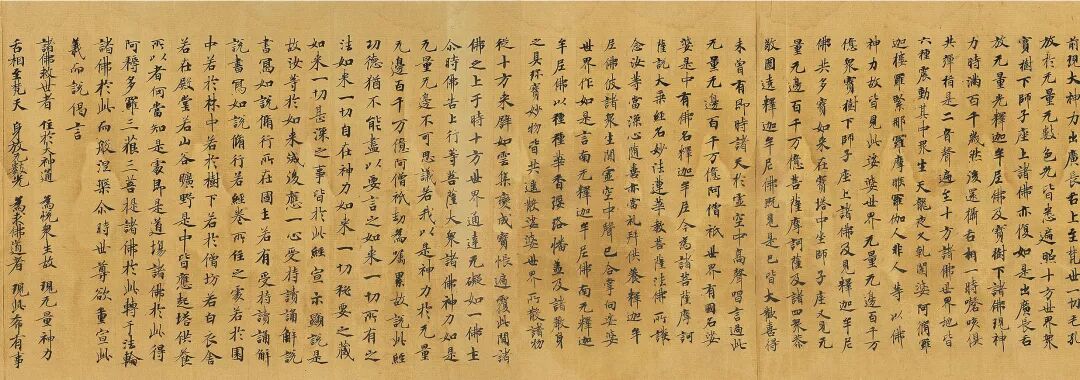 前現大神力出廣長舌上至梵世一切毛孔
放於无量无數色光皆悉遍照十方世界衆
寶樹下師子座上諸佛亦復如是出廣長舌
放无量光釋迦牟尼佛及寶樹下諸佛現神
力時滿百千歲然後還攝舌相一時謦欬俱
共彈指是二音聲遍至十方諸佛世界地皆
六種震動其中衆生天龍夜叉乾闥婆阿脩羅
迦樓羅緊那羅摩睺羅伽人非人等以佛
神力故皆見此娑婆世界无量无邊百千万
億衆寶樹下師子座上諸佛及見釋迦牟尼
佛共多寶如來在寶塔中坐師子座又見无
量无邊百千万億菩薩摩訶薩及諸四衆恭
敬圍遶釋迦牟尼佛既見是已皆大歡喜得
未曾有即時諸天於虛空中高聲唱言過此
无量无邊百千万億阿僧祇世界有國名娑
婆是中有佛名釋迦牟尼今為諸菩薩摩訶
薩說大乘經名妙法蓮華教菩薩法佛所護
念汝等當深心隨喜亦當礼拜供養釋迦牟
尼佛彼諸衆生聞虛空中聲已合掌向娑婆
世界作如是言南无釋迦牟尼佛南无釋迦
牟尼佛以種種華香瓔珞幡蓋及諸嚴身
之具珎寶妙物皆共遙散娑婆世界所散諸物
從十方來譬如雲集變成寶帳遍覆此間諸
佛之上于時十方世界通達无礙如一佛土
尒時佛告上行等菩薩大衆諸佛神力如是
无量无邊不可思議若我以是神力於无量
无邊百千万億阿僧祇劫為囑累故說此經
功德猶不能盡以要言之如來一切所有之
法如來一切自在神力如來一切秘要之藏
如來一切甚深之事皆於此經宣示顯說是
故汝等於如來滅後應一心受持讀誦解說
書寫如說脩行所在國土若有受持讀誦解
說書寫如說脩行若經卷所住之處若於園
中若於林中若於樹下若於僧坊若白衣舍
若在殿堂若山谷曠野是中皆應起塔供養
所以者何當知是處即是道場諸佛於此得
阿耨多羅三藐三菩提諸佛於此轉于法輪
諸佛於此而般涅槃尒時世尊欲重宣此
義而說偈言
諸佛救世者 住於大神通 為悅衆生故 現无量神力
舌相至梵天 身放无數光 為求佛道者 現此希有事